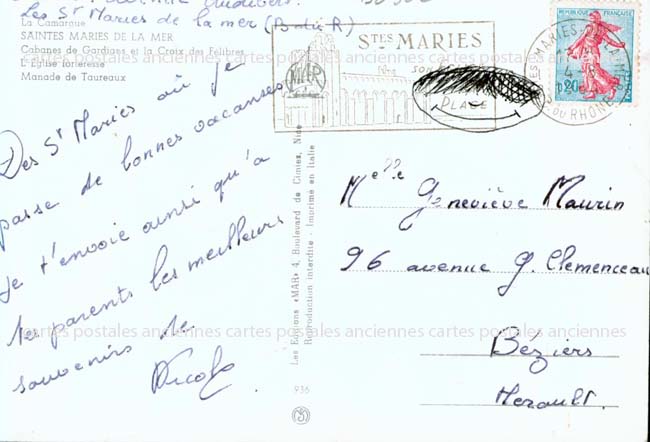 Les Stes Maries de la mer (B. du R)
La Camargue
SAINTES MARIES DE LA MER
Cabanes de Gardians et la Croix des Felibres
L'Eglise forteresse
Manade de Taureaux
Des St Maries où je
passe de bonnes vacances
je t'envoie ainsi qu'à
tes parents les meilleurs
souvenirs de
Nicole
Les Editions «MAR» 4, Boulevard de Cimiez, Nice
Reproduction interdite - Imprimé en Italie
936
STES MARIES
SON
PLAGE
MAR
REPUBLIQUE FRANÇAISE
0,20
DU RHONE
Melle Geneviève Maurin
96 avenue G. Clemenceau
Béziers
Herault.
cartes postales anciennes cartes postales anciennes cartes postales anciennes